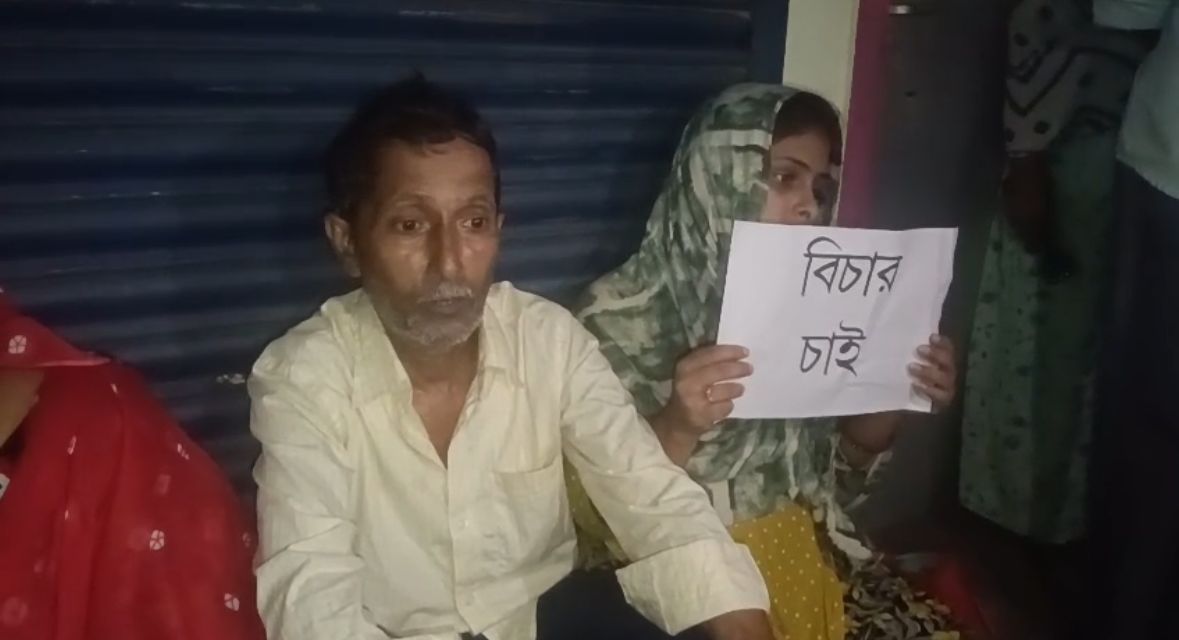 বিচার
চাই